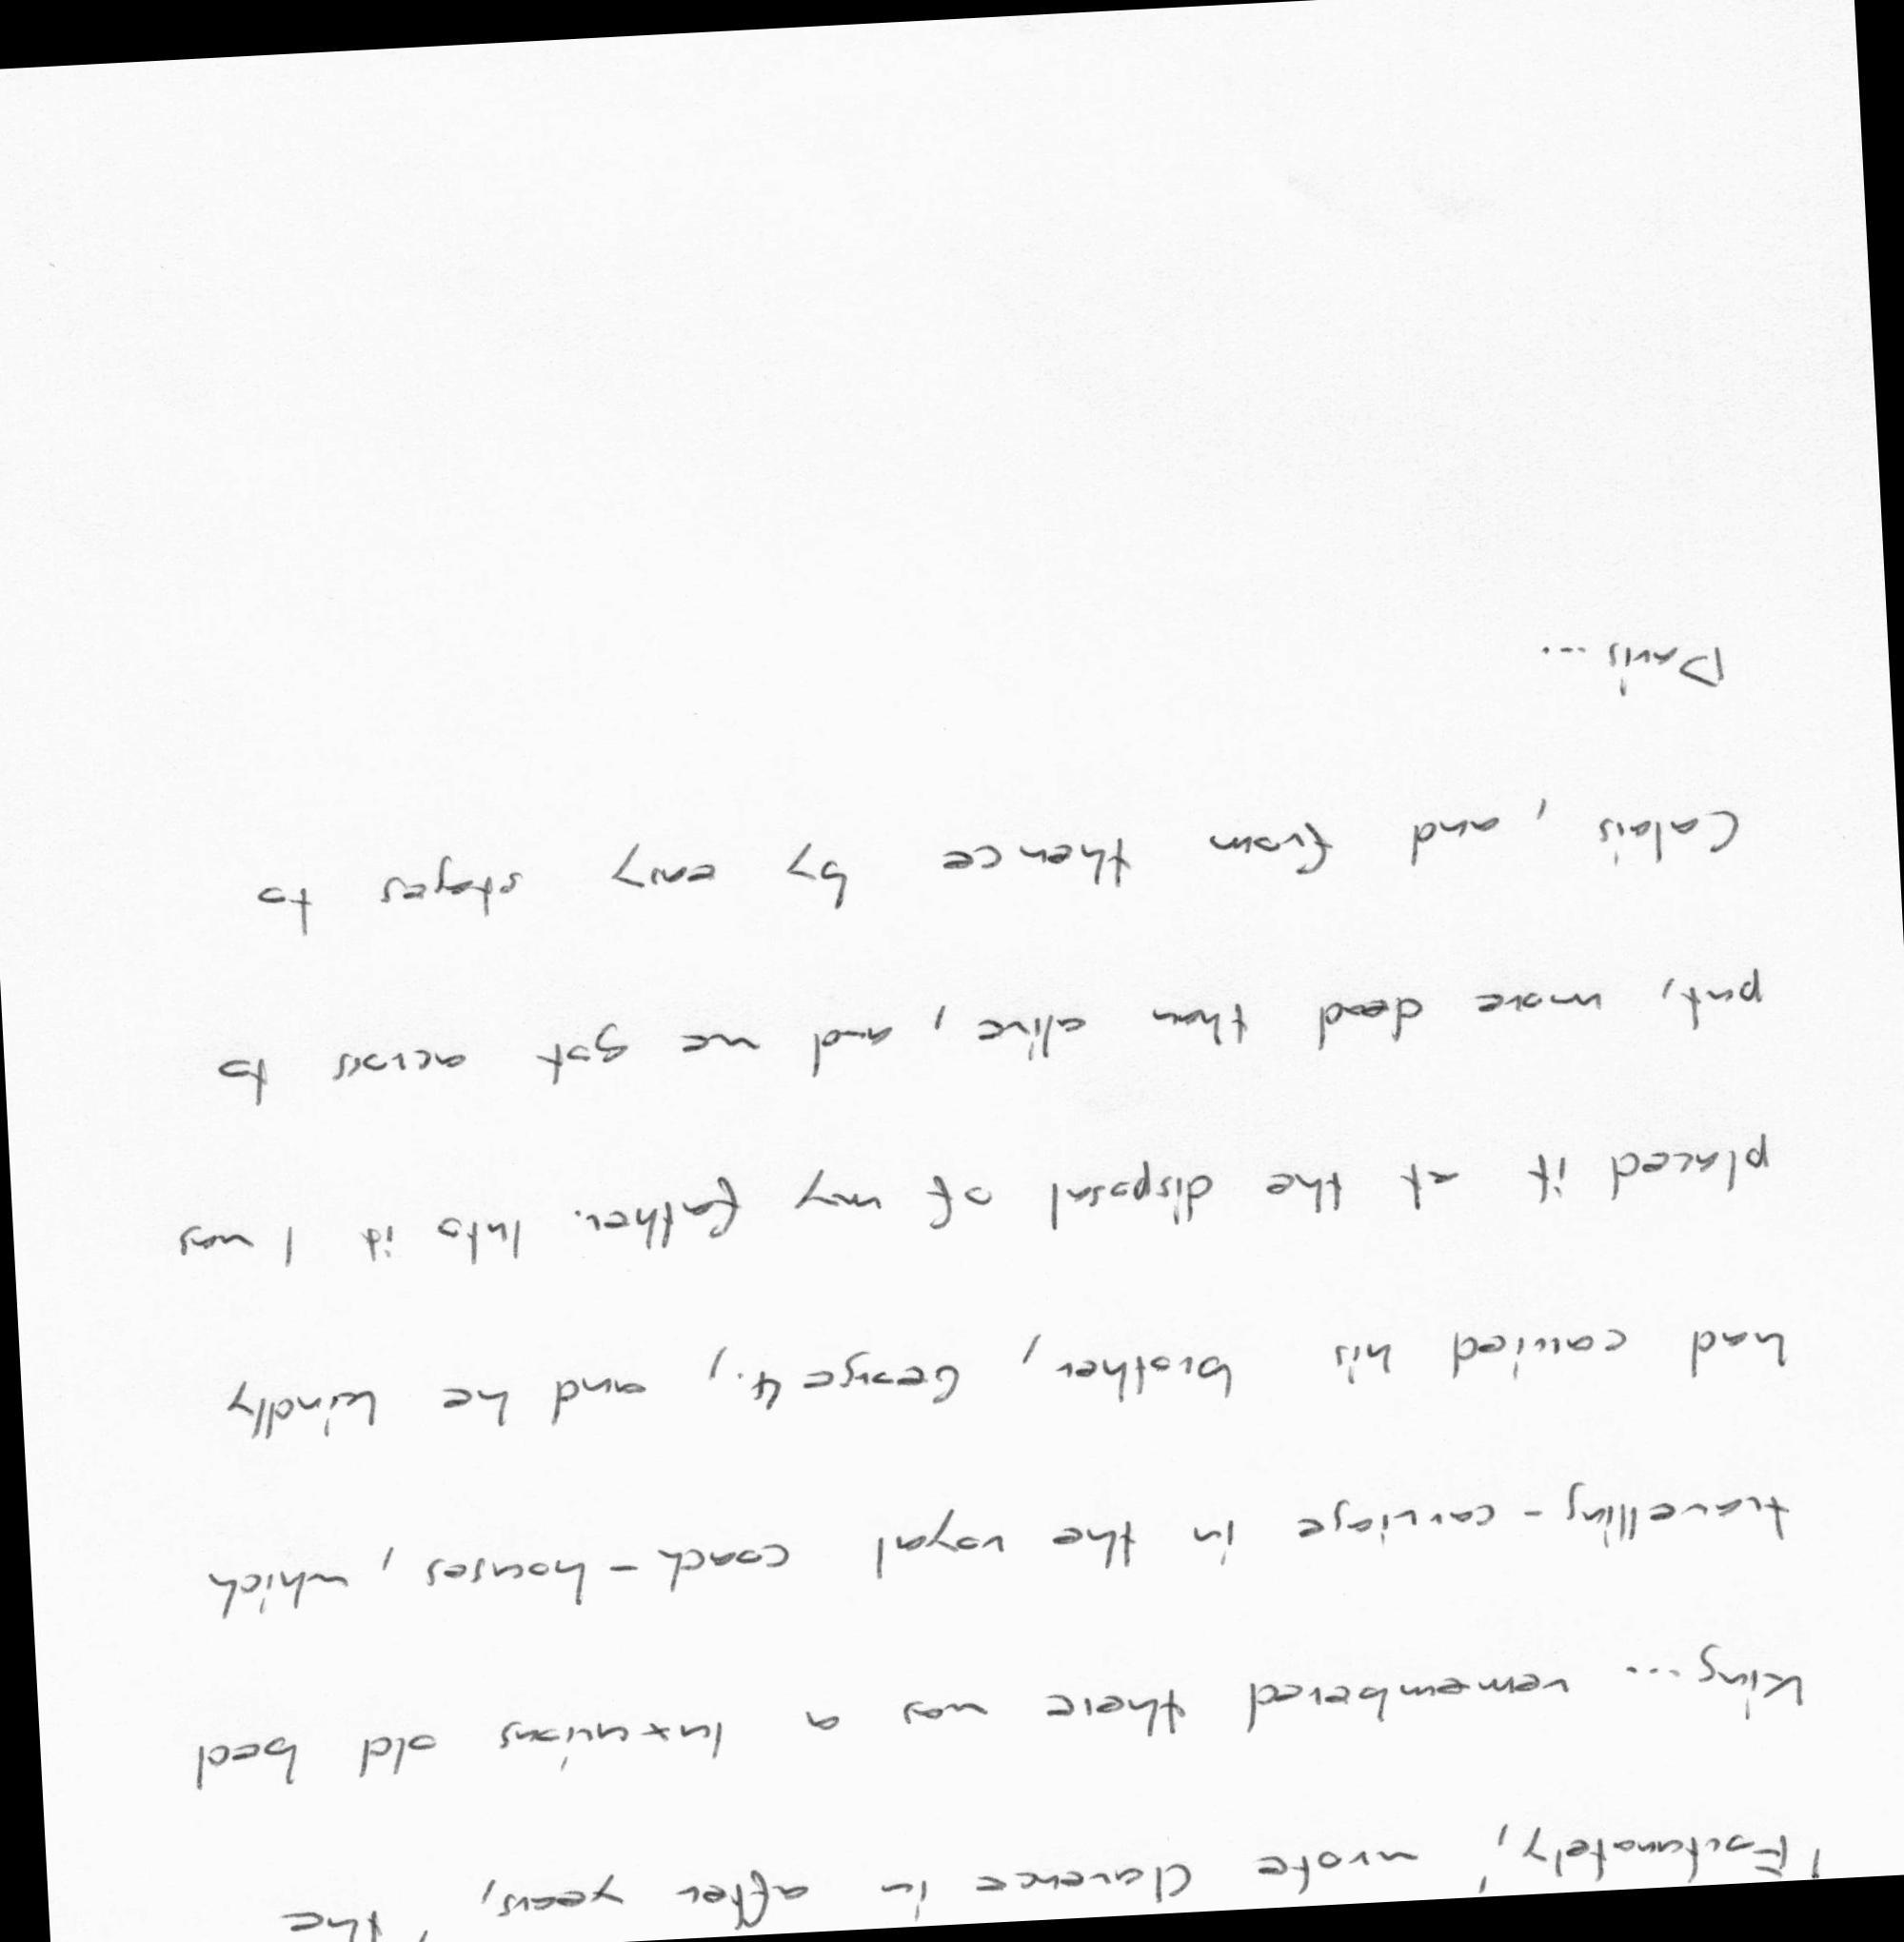 'Fortunately,' wrote Clarence in after years, 'the
King... remembered there was a luxurious old bed
travelling-carriage in the royal coach-houses, which
had carried his brother, George 4., and he kindly
placed it at the disposal of my father. Into it I was
put, more dead than alive, and we got across to
Calais, and from thence by easy stages to
Paris...